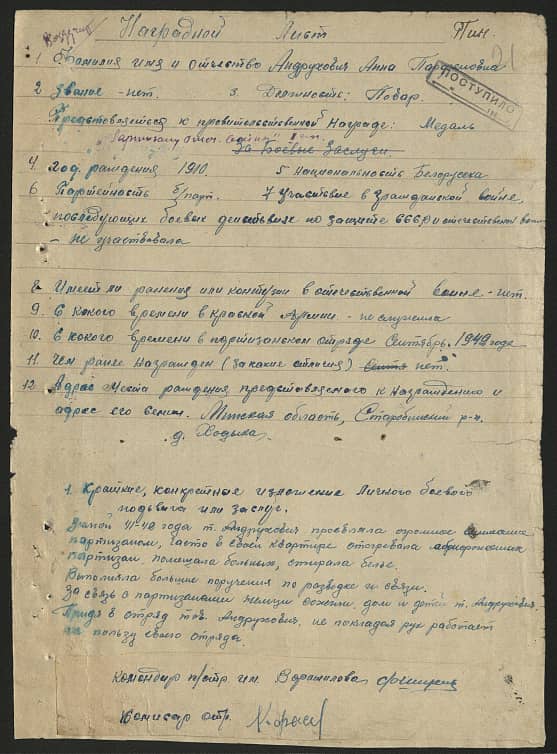 Наградной Лист Пин.
ПОСТУПИЛО
1 Фамилия имя и отчество Андрухович Анна
2 Звание - нет. 3. Должность: Повар.
Представляется к правительственной Награде: Медаль
За Боевые Заслуги
4. Год рождения 1910. 5 Национальность Белоруска
6 Партейность б/парт. 7 Участвие в гражданской войне,
последующих боевых действиях по защите СССР и отечественной
- не участвовала
8. Имеет ли ранения или контузии в отечественной войне - нет.
9. С какого времени в Красной Армии - не служила
10. С какого времени в партизанском отряде Сентябрь 1942 года
11. Чем ранее награжден (за какие отличия) нет.
12. Адрес места рождения представляемого к награждению и
адрес его семьи. Минская область, Старобинский р-н.
д. Ходыка.
1. Краткие, конкретные изложение личного боевого
подвига или заслуг.
Зимой 41-42 года т. Андрухович проявляла огромное
партизанам, часто в своей квартире отогревала обмороженных
партизан, помещала больных, стирала белье.
Выполняла большие поручения по разведке и связи.
За связь с партизанами немцы сожгли дом и детей т. Андрухович.
Придя в отряд тов. Андрухович, не покладая рук работает
на пользу своего отряда.
Командир п/отр им. Ворошилова
Комисар отр.